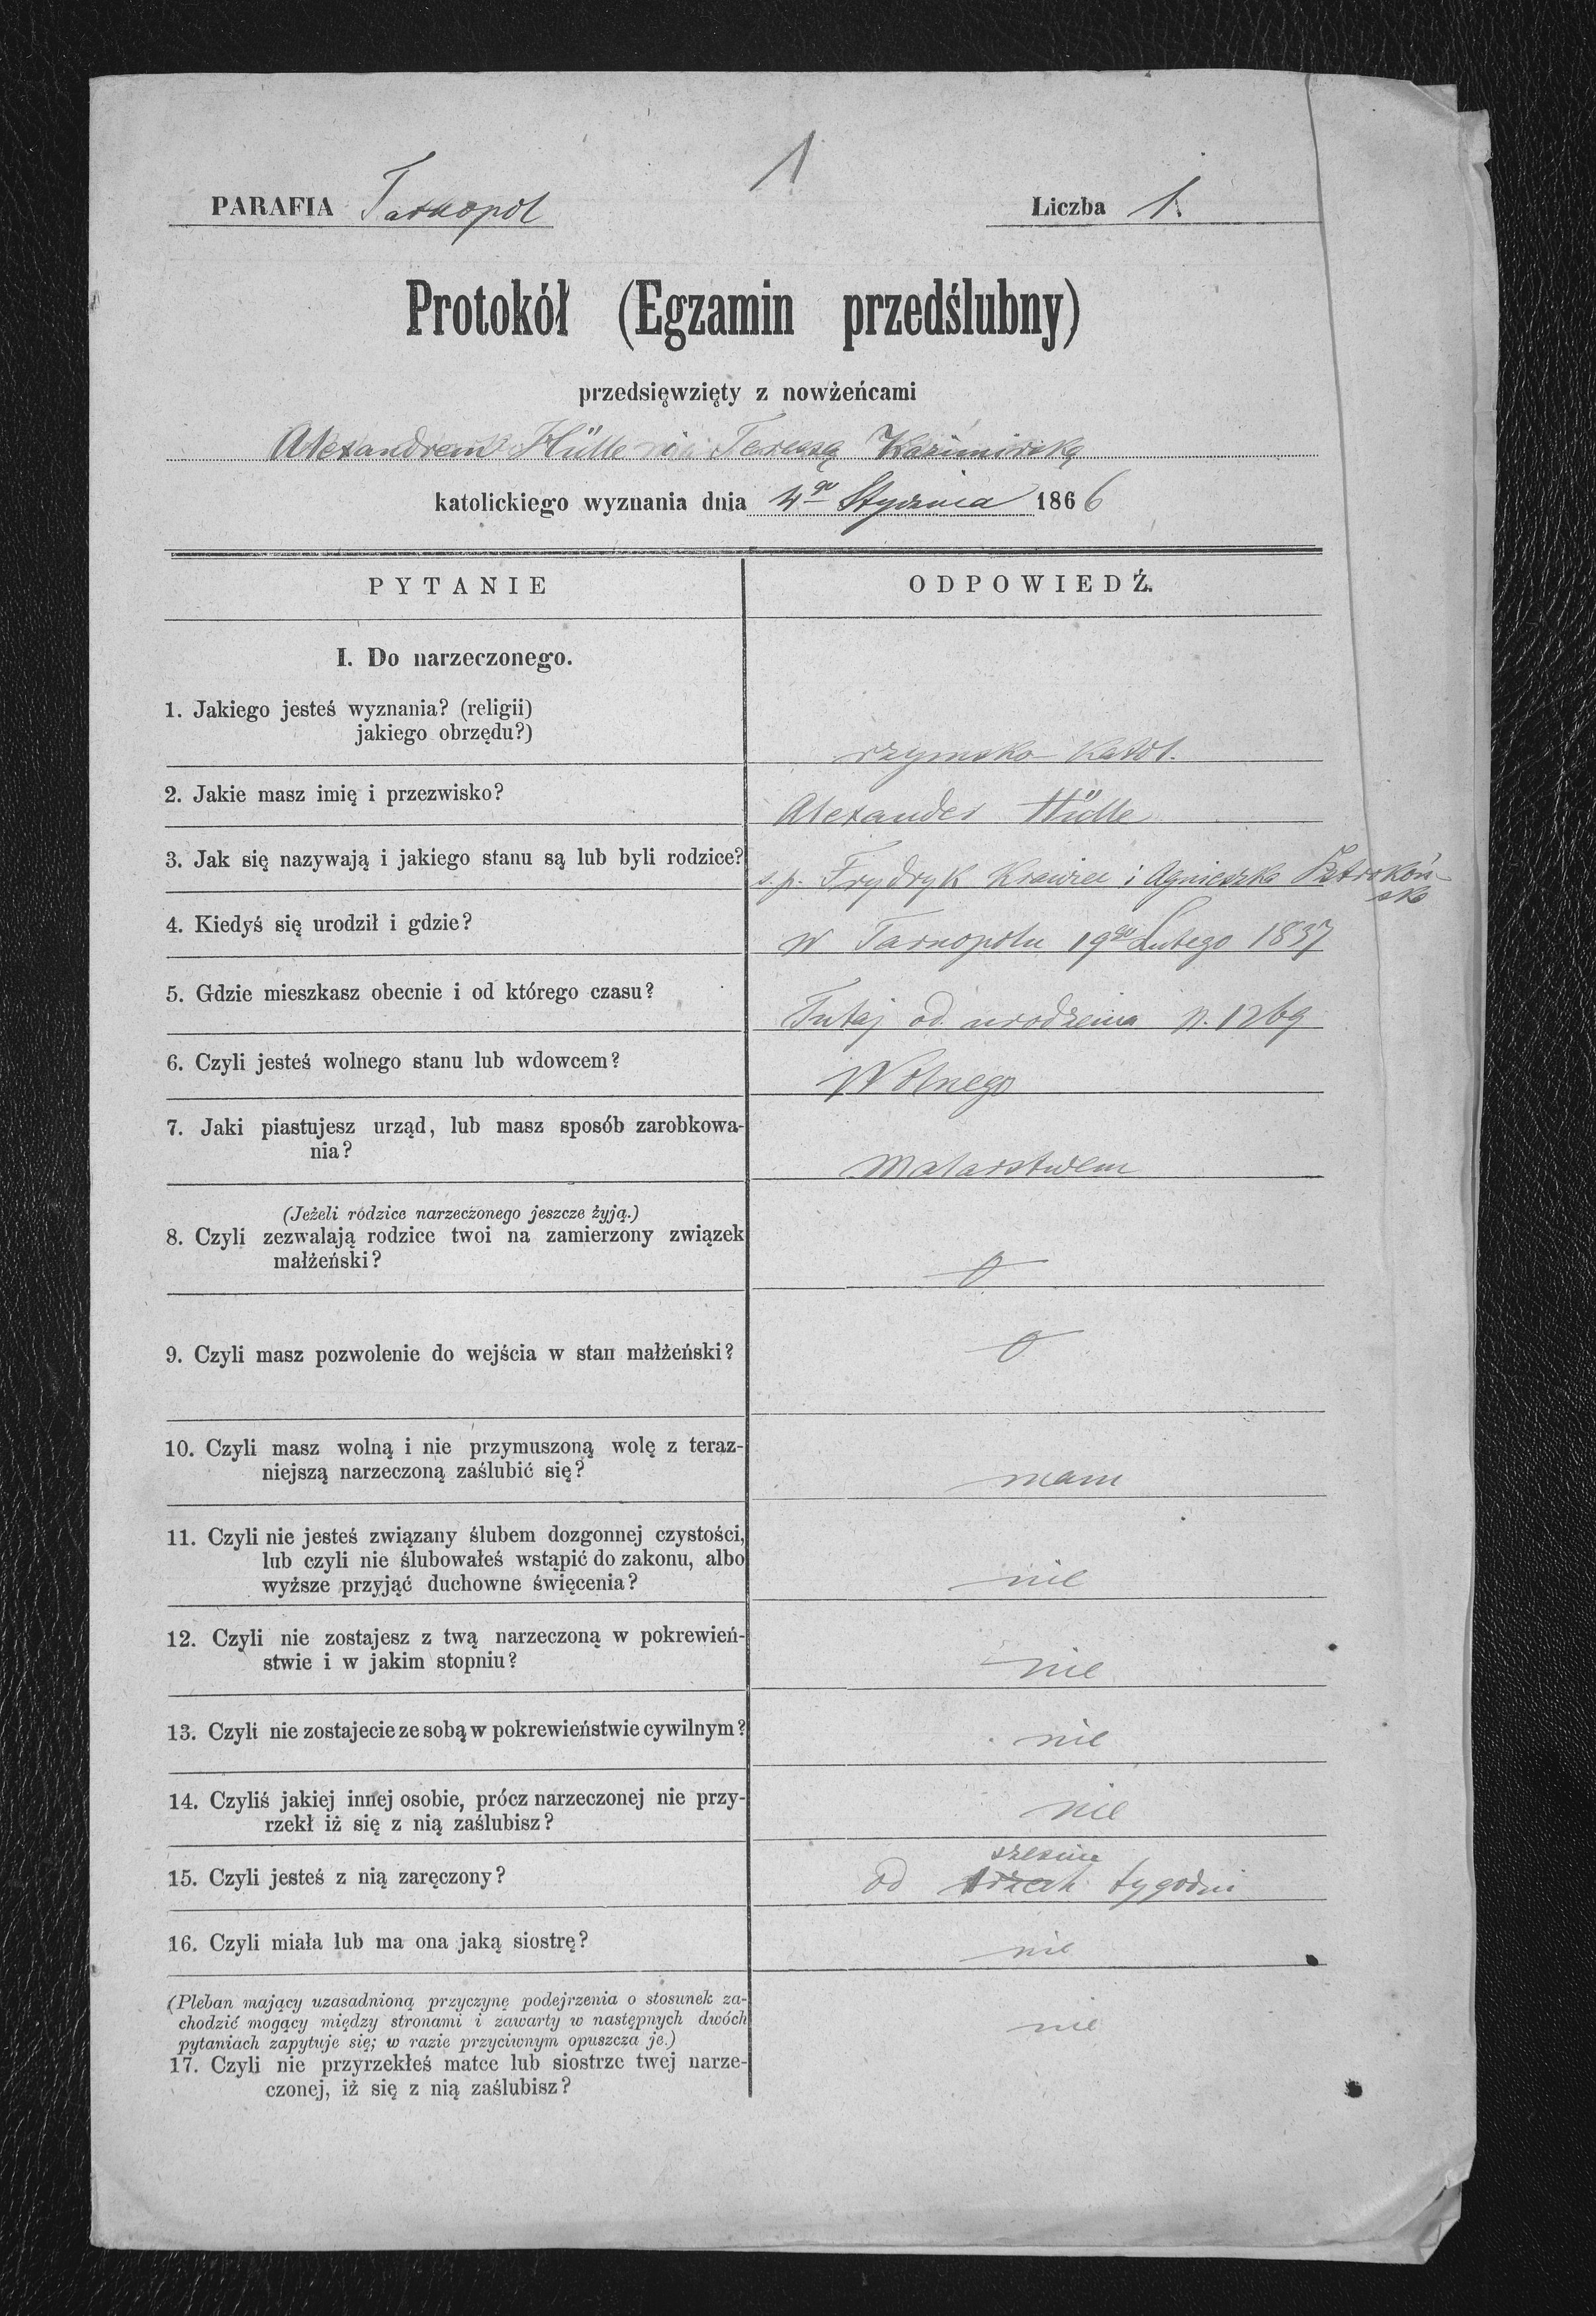 1
PARAFIA Tarnopol
Liczba 1.
Protokół (Egzamin przedślubny)
przedsięwzięty z nowżeńcami
Alexandrem Hülle i Teresą Kazimirską
katolickiego wyznania dnia 4go Stycznia 1866
PYTANIE
ODPOWIEDŹ.
I. Do narzeczonego.
1. Jakiego jesteś wyznania? (religii)
jakiego obrzędu?)
rzymsko katol.
2. Jakie masz imię i przezwisko?
Alexander Hülle
3. Jak się nazywają i jakiego stanu są lub byli rodzice?
s. p. Frydryk Krawiec i Agnieszka
4. Kiedyś się urodził i gdzie?
w Tarnopolu 19go Lutego 1837
5. Gdzie mieszkasz obecnie i od którego czasu?
Tutaj od urodzenia n. 1269
6. Czyli jesteś wolnego stanu lub wdowcem?
Wolnego
7. Jaki piastujesz urząd, lub masz sposób zarobkowa-
nia?
Malarstwem
(Jeżeli rodzice narzeczonego jeszcze żyją.)
8. Czyli zezwalają rodzice twoi na zamierzony związek
małżeński?
0
9. Czyli masz pozwolenie do wejścia w stan małżeński?
0
10. Czyli masz wolną i nie przymuszoną wolę z teraz-
niejszą narzeczoną zaślubić się?
mam
11. Czyli nie jesteś związany ślubem dozgonnej czystości,
lub czyli nie ślubowałeś wstąpić do zakonu, albo
wyższe przyjąć duchowne święcenia?
nie
12. Czyli nie zostajesz z twą narzeczoną w pokrewień-
stwie i w jakim stopniu?
nie
13. Czyli nie zostajecie ze sobą w pokrewieństwie cywilnym?
nie
14. Czyliś jakiej innej osobie, prócz narzeczonej nie przy-
rzekł iż się z nią zaślubisz?
nie
15. Czyli jesteś z nią zaręczony?
sześciu
od trzech tygodni
16. Czyli miała lub ma ona jaką siostrę?
nie
(Pleban mający uzasadnioną przyczynę podejrzenia o stosunek za-
chodzić mogący między stronami i zawarty w następnych dwóch
pytaniach zapytuje się; w razie przyciwnym opuszcza je.)
nie
17. Czyli nie przyrzekłeś matce lub siostrze twej narze-
czonej, iż się z nią zaślubisz?